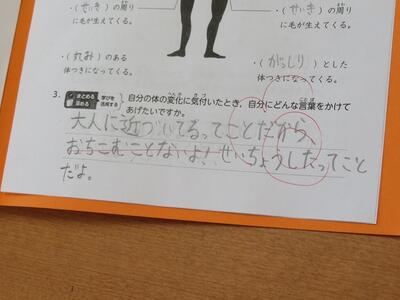 ・(せいき)の周り
に毛が生えてくる。
・(せいき)の周り
に毛が生えてくる。
・(丸み)のある
体つきになってくる。
・(がっしり)とした
体つきになってくる。
3. まとめる 深める 学びを活用する 自分の体の変化に気付いたとき、自分にどんな言葉をかけて
あげたいですか。
大人に近づいてるってことだから、
おちこむことないよ！せいちょうしたってこと
だよ。